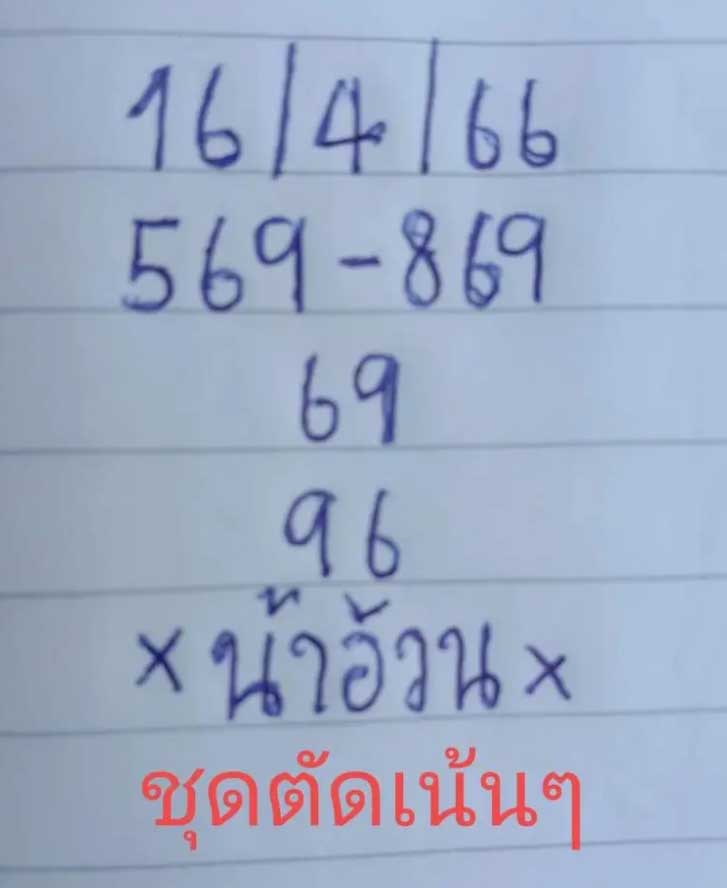 16/4/66
569-869
69
96
× น้าอ้วน ×
ชุดตัดเน้นๆ